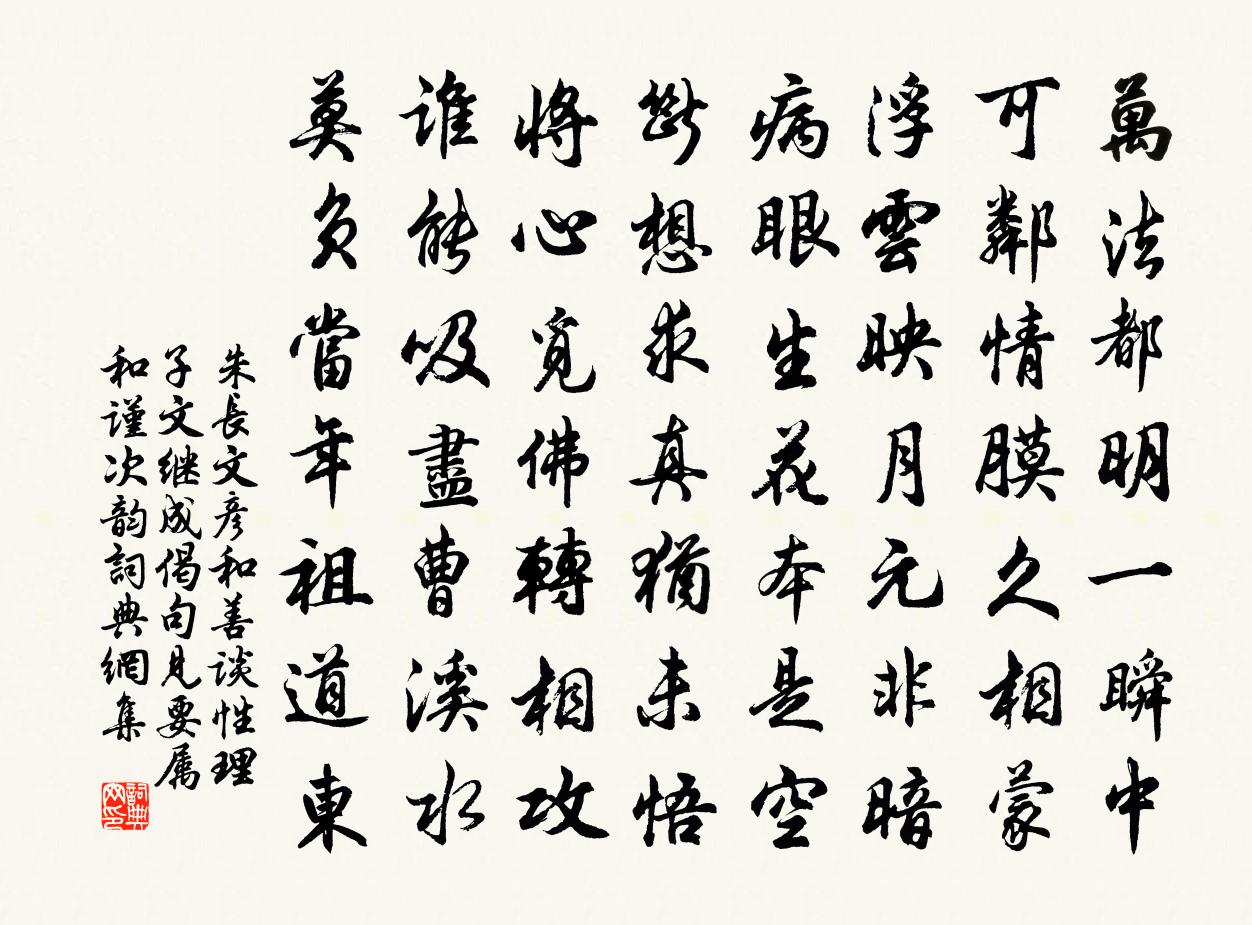 萬法都明一瞬中
可鄰情膜久相蒙
浮雲映月元非暗
病眼生花本是空
斷想求真猶未悟
將心覓佛轉相攻
誰能吸盡曹溪水
莫負當年祖道東
朱長文彥和善谈性理
子文継成偈句見要属
和谨次韵詞典網集
詞典
网印